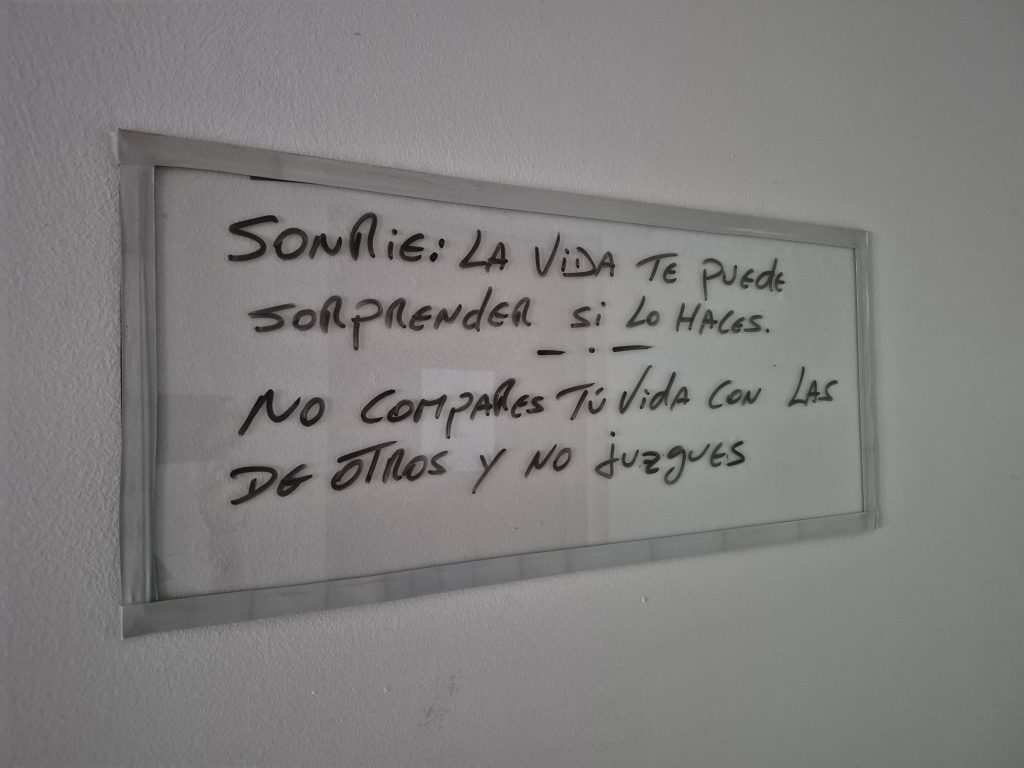 SONRIE: LA ViDA TE PUEDE
SORPRENDER Si LO HACES.
— . —
NO COMPARES TÚ ViDA CON LAS
DE OTROS Y NO juzgues